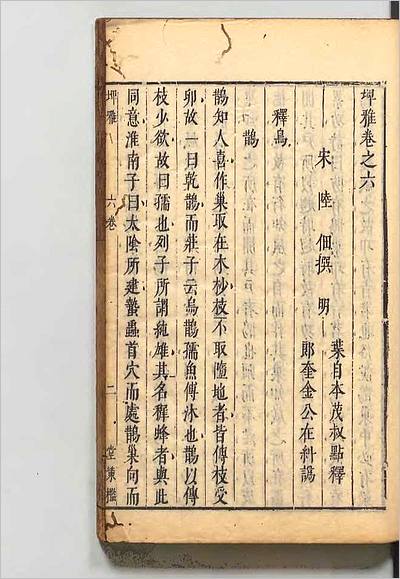 埤雅卷之六
宋 陸 佃撰 明
葉自本茂叔點釋
郞奎金公在糾譌
釋鳥
鵲
鵲知人喜作巢取在木杪枝不取墮地者皆傳枝受
卵故一曰乾鵲而莊子云烏鵲孺魚傳沫也鵲以傳
枝少欲故曰孺也列子所謂純雄其名稺蜂者與此
同意淮南子曰太陰所建蟄蟲首穴而處鵲巢向而
埤雅 六卷 二 堂策檻